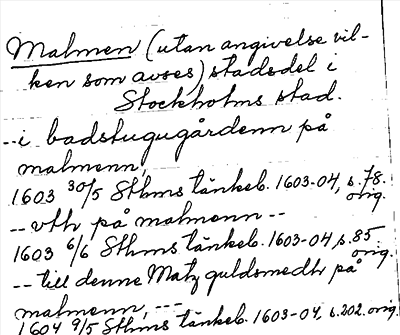 Malmen (utan angivelse vil-
ken som avses) stadsdel i
Stockholms stad.
--i badstugugårdenn på
malmenn,
1603 30/5 Sthms tänkeb. 1603-04, s.78.
orig.
-- vth på malmenn --
1603 6/6 Sthms tänkeb. 1603-04 s.85
orig.
-- till denne Matz guldsmedh på
malmenn, ---
1604 9/5 Sthms tänkeb. 1603-04, s.202. orig.